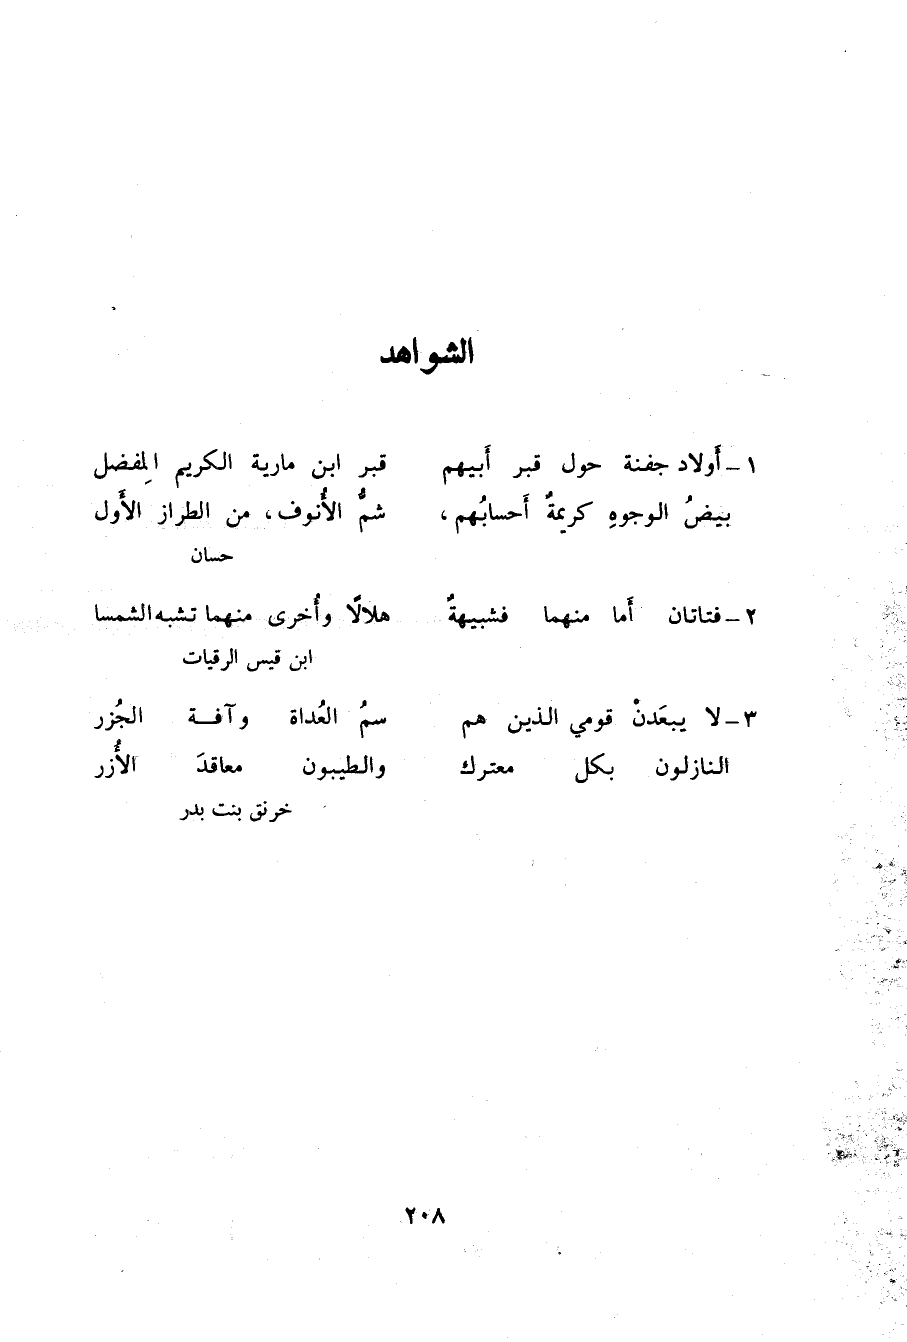 الشواهد
١ – أَولاد جفنة حول قبر أَبيهم قبر ابن مارية الكريم المِفضل
بيضُ الوجوهِ كريمةٌ أَحسابُهم ، شمُّ الأُنوف ، من الطراز الأَول
حسان
٢ – فتاتان أَما منهما فشبيهةٌ هلالًا وأُخرى منهما تشبه الشمسا
ابن قيس الرقيات
٣ – لا يبعَدنْ قومي الذين هم سمُ العُداة وآفـة الجُزر
النازلون بكل معترك والطيبون معاقدَ الأُزر
خرنق بنت بدر
٢٠٨